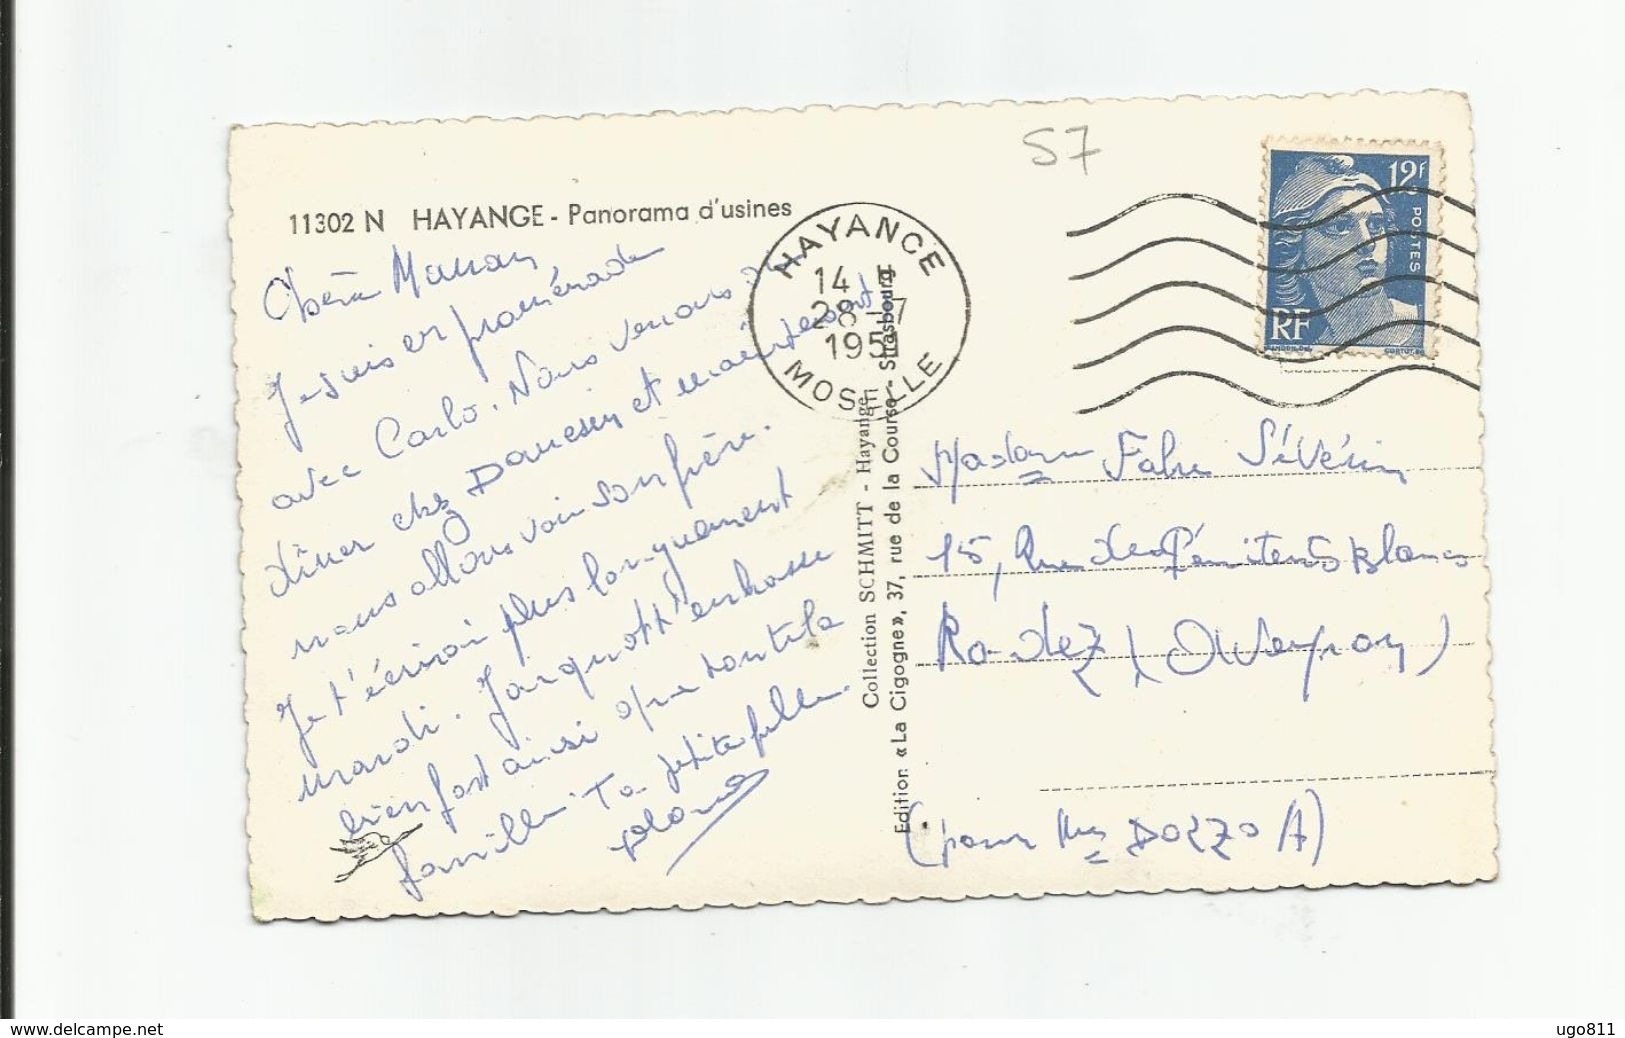 57
11302 N HAYANGE - Panorama d'usines
HAYANGE
14
28-7
1951
MOSELLE
12F
POSTES
RF
Chère Maman
Je suis en promenade
avec Carlo. Nous venons de
dîner chez et maintenant
nous allons voir son frère.
Je t'écrirai plus longuement
mardi. Jacquot t'embrasse
bien fort ainsi que toute la
famille. Ta petite fille.
Collection SCHMITT - Hayange
Edition «La Cigogne», 37, rue de la Course - Strasbourg
Madame Fabre Sévérin
15, Rue des Pénitents Blancs
Rodez (Aveyron)
(pour Me DOZZO A)
www.delcampe.net
ugo811